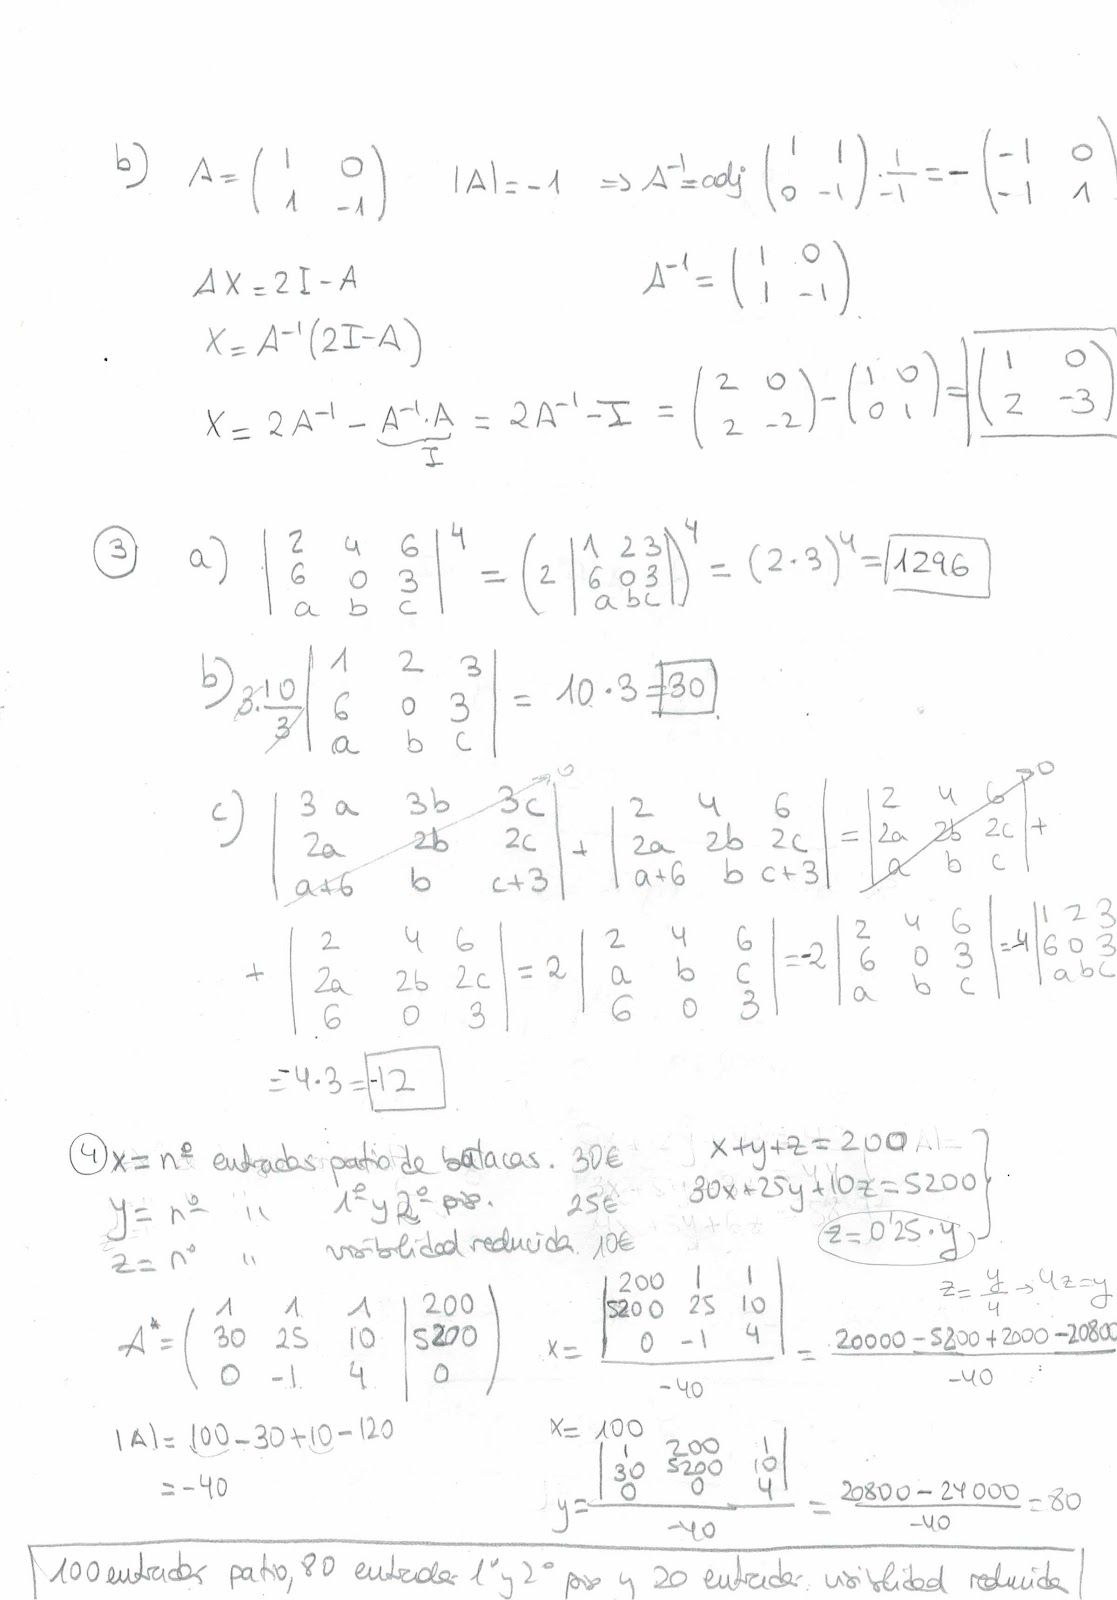 b) A = ( 1 0 ; 1 -1 ) |A| = -1 => A⁻¹ = adj ( 1 1 ; 0 -1 ) · 1/-1 = - ( -1 0 ; -1 1
AX = 2I - A A⁻¹ = ( 1 0 ; 1 -1 )
X = A⁻¹(2I-A)
X = 2A⁻¹ - A⁻¹·A = 2A⁻¹ - I = ( 2 0 ; 2 -2 ) - ( 1 0 ; 0 1 ) = ( 1 0 ; 2 -3 )
I
3 a) | 2 4 6 ; 6 0 3 ; a b c |⁴ = ( 2 | 1 2 3 ; 6 0 3 ; a b c | )⁴ = (2·3)⁴ = 1296
b) 3·10/3 | 1 2 3 ; 6 0 3 ; a b c | = 10·3 = 30
c) | 3a 3b 3c ; 2a 2b 2c ; a+6 b c+3 | → 0 + | 2 4 6 ; 2a 2b 2c ; a+6 b c+3 | = | 2 4 6 ; 2a 2b 2c ; a b c | → 0 +
+ | 2 4 6 ; 2a 2b 2c ; 6 0 3 | = 2 | 2 4 6 ; a b c ; 6 0 3 | = -2 | 2 4 6 ; 6 0 3 ; a b c | = -4 | 1 2 3 ; 6 0 3 ; a b c
= -4·3 = -12
4 x = nº entradas patio de butacas. 30€ x+y+z = 200
y = nº " 1º y 2º piso. 25€ 30x+25y+10z = 5200
z = nº " visiblidad reducida. 10€ z = 0'25·y
z = y/4 → 4z = y
A* = ( 1 1 1 | 200 ; 30 25 10 | 5200 ; 0 -1 4 | 0 ) x = | 200 1 1 ; 5200 25 10 ; 0 -1 4 | / -40 = 20000 - 5200 + 2000 - 20800 / -40
|A| = 100 - 30 + 10 - 120 x = 100
= -40 y = | 1 200 1 ; 30 5200 10 ; 0 0 4 | / -40 = 20800 - 24000 / -40 = 80
100 entradas patio, 80 entradas 1º y 2º piso y 20 entradas visiblidad reducida